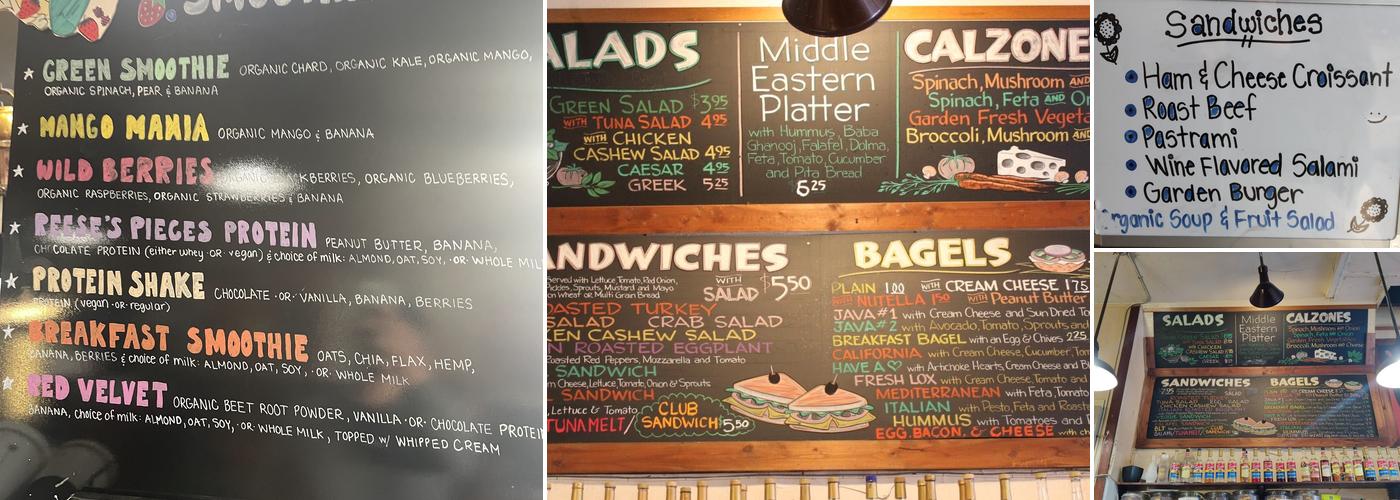 SMOOTHIE
GREEN SMOOTHIE ORGANIC CHARD, ORGANIC KALE, ORGANIC MANGO,
ORGANIC SPINACH, PEAR & BANANA
MANGO MANIA ORGANIC MANGO & BANANA
WILD BERRIES ORGANIC BLUEBERRIES,
ORGANIC RASPBERRIES, ORGANIC STRAWBERRIES & BANANA
REESE'S PIECES PROTEIN PEANUT BUTTER, BANANA,
CHOCOLATE PROTEIN (either whey ·or· vegan) & choice of milk: ALMOND, OAT, SOY, ·OR· WHOLE MIL
PROTEIN SHAKE CHOCOLATE ·OR· VANILLA, BANANA, BERRIES
PROTEIN (vegan ·or· regular)
BREAKFAST SMOOTHIE OATS, CHIA, FLAX, HEMP,
BANANA, BERRIES & choice of milk: ALMOND, OAT, SOY, ·OR· WHOLE MILK
RED VELVET ORGANIC BEET ROOT POWDER, VANILLA ·OR· CHOCOLATE PROTEIN
BANANA, choice of milk: ALMOND, OAT, SOY, ·OR· WHOLE MILK, TOPPED w/ WHIPPED CREAM
ALADS
GREEN SALAD $3.95
WITH TUNA SALAD 4.95
WITH CHICKEN
CASHEW SALAD 4.95
CAESAR 4.95
GREEK 5.25
Middle
Eastern
Platter
with Hummus, Baba
Ghanooj, Falafel, Dolma,
Feta, Tomato, Cucumber
and Pita Bread
6.25
CALZONE
Spinach, Mushroom AND
Spinach, Feta AND On
Garden Fresh Vegeta
Broccoli, Mushroom AND
ANDWICHES
Served with Lettuce, Tomato, Red Onion,
Pickles, Sprouts, Mustard and Mayo
on Wheat or Multi Grain Bread
WITH
SALAD $5.50
OASTED TURKEY
SALAD CRAB SALAD
KEN CASHEW SALAD
N ROASTED EGGPLANT
Roasted Red Peppers, Mozzarella and Tomato
SANDWICH
m Cheese, Lettuce, Tomato, Onion & Sprouts
SANDWICH
, Lettuce & Tomato
TUNA MELT/ CLUB
SANDWICH 5.50
BAGELS
PLAIN 1.00 WITH CREAM CHEESE 1.75
WITH NUTELLA 1.50 WITH Peanut Butter
JAVA #1 with Cream Cheese and Sun Dried To
JAVA #2 with Avocado, Tomato, Sprouts and
BREAKFAST BAGEL with an Egg & Chives 2.25
CALIFORNIA with Cream Cheese, Cucumber, Tom
HAVE A ♡ with Artichoke Hearts, Cream Cheese and B
FRESH LOX with Cream Cheese, Tomato and
MEDITERRANEAN with Feta, Tomato,
ITALIAN with Pesto, Feta and Roaste
HUMMUS with Tomatoes and
EGG, BACON, & CHEESE with ch
Sandwiches
Ham & Cheese Croissant
Roast Beef
Pastrami
Wine Flavored Salami
Garden Burger
rganic Soup & Fruit Salad
SALADS
Middle
Eastern
Platter
CALZONES
SANDWICHES
BAGELS